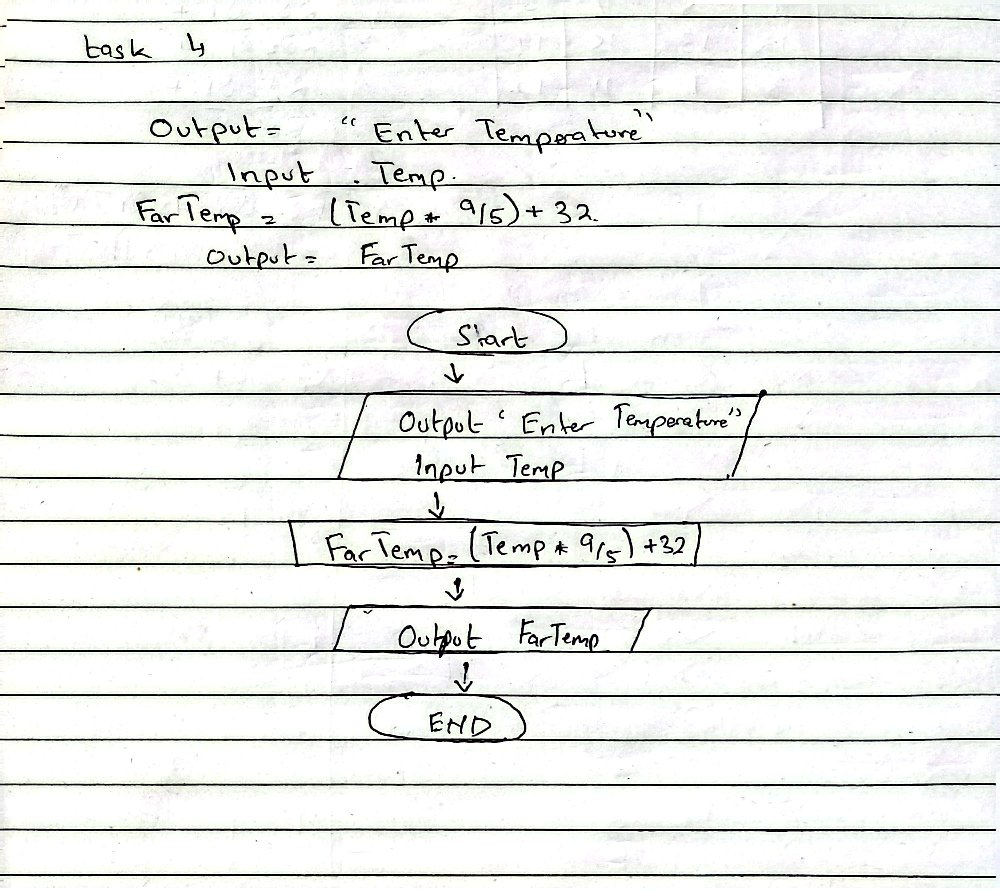 task 4
Output = "Enter Temperature"
Input . Temp.
FarTemp = (Temp * 9/5) + 32.
Output = FarTemp
Start
Output "Enter Temperature"
Input Temp
FarTemp = (Temp * 9/5) + 32
Output FarTemp
END